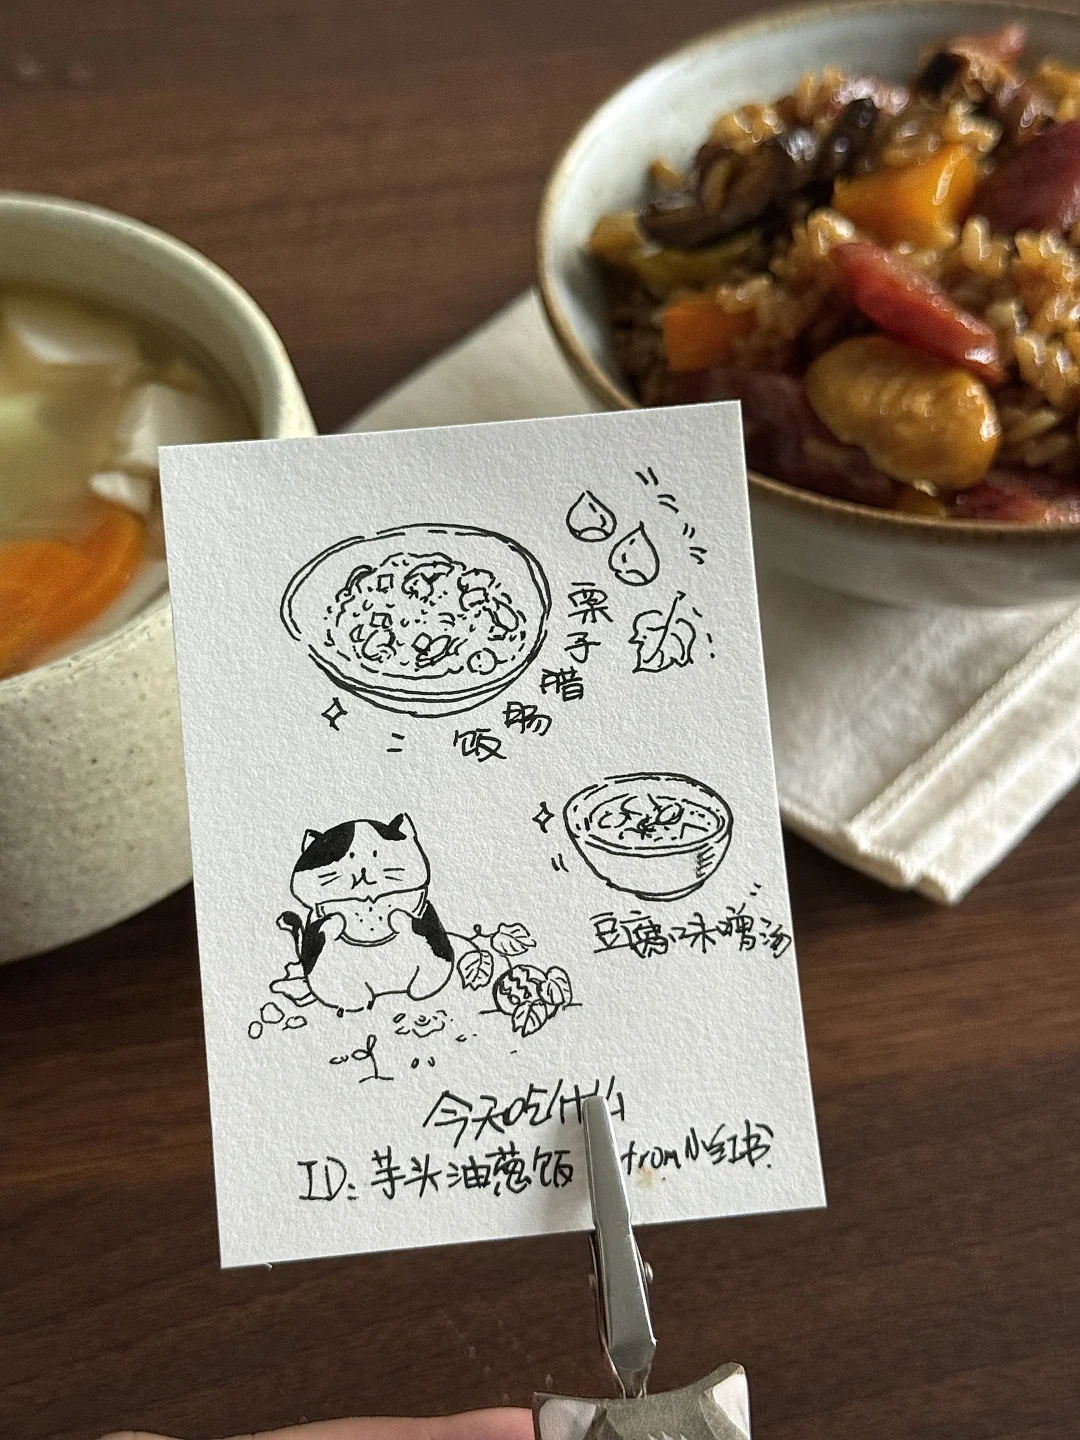 栗子腊肠饭
豆腐味噌汤
今天吃什么
ID:芋头油葱饭 from小红书